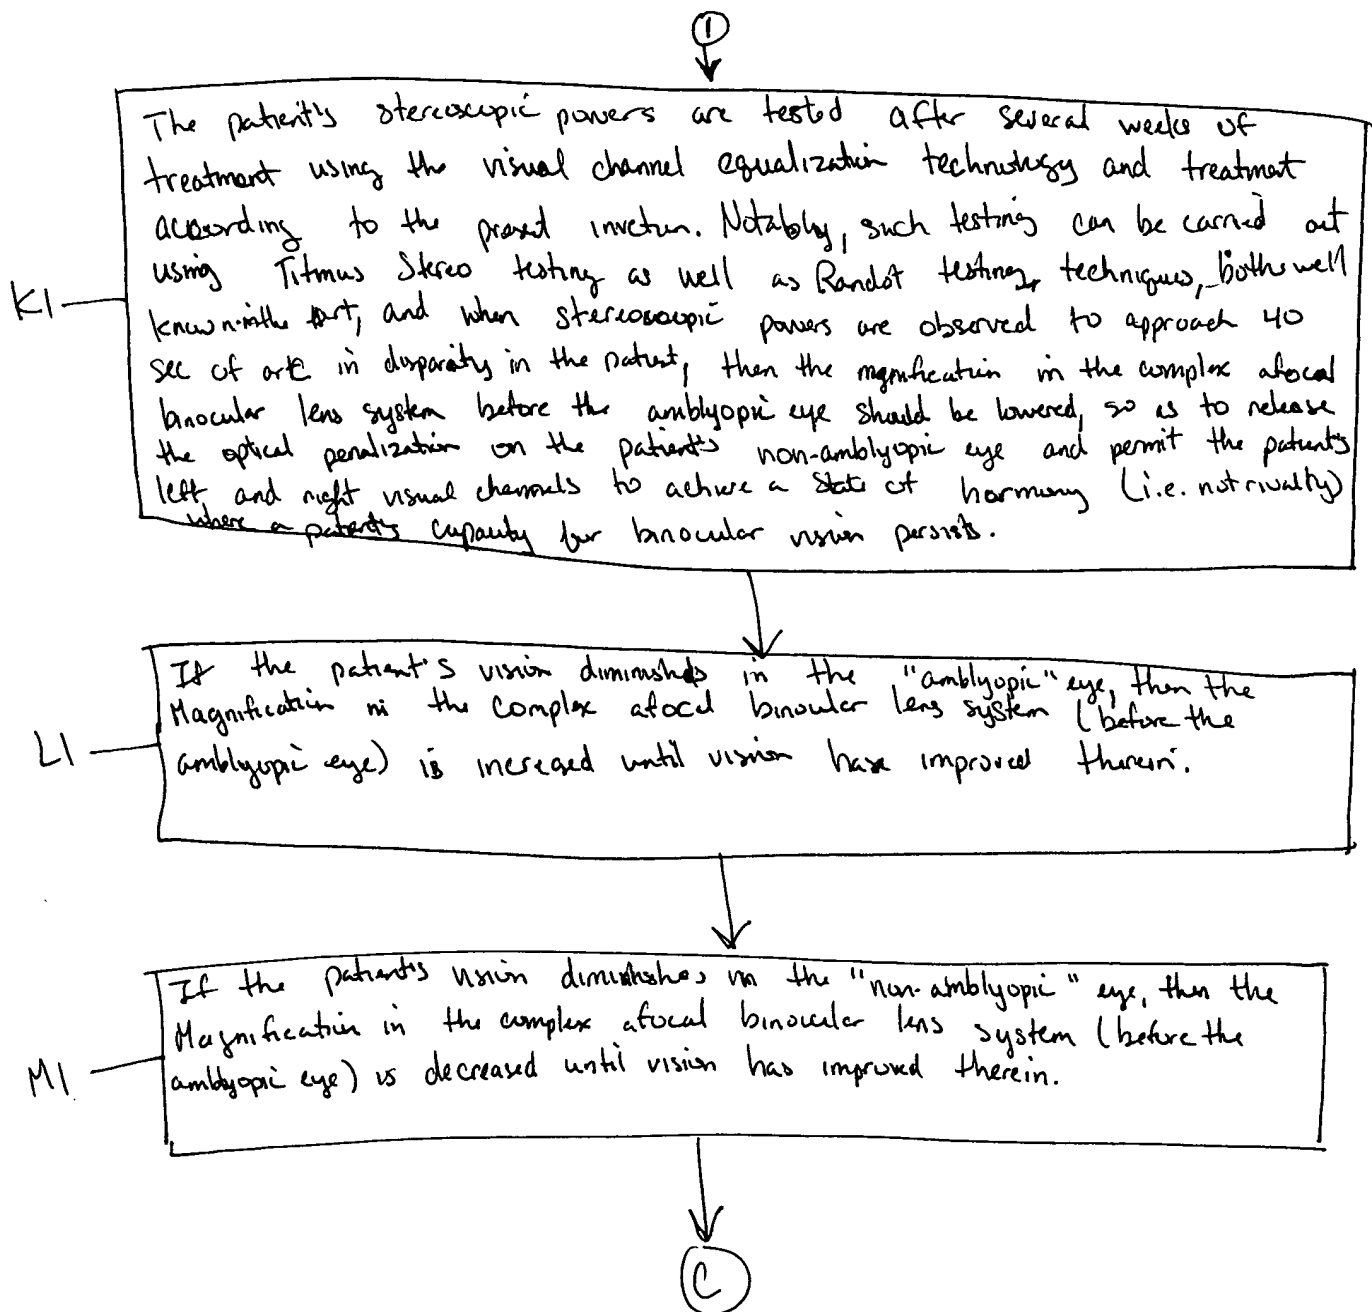 1
The patient's stereoscopic powers are tested after several weeks of
treatment using the visual channel equalization technology and treatment
according to the present invetion. Notably, such testing can be carried out
using Titmus Stereo testing as well as Randot testing techniques, both well
known in the art, and when stereoscopic powers are observed to approach 40
K1
sec of arc in disparity in the patient, then the magnification in the complex afocal
binocular lens system before the amblyopic eye should be lowered, so as to release
the optical penalization on the patient's non-amblyopic eye and permit the patient's
left and right visual channels to achieve a state of harmony (i.e. not rivalty)
where a patient's capacity for binocular vision persists.
If the patient's vision diminishds in the "amblyopic" eye, then the
Magnification in the complex afocal binocular lens system (before the
L1
amblyopic eye) is increased until vision have improved therein.
If the patient's vision diminishes in the "non-amblyopic" eye, then the
Magnification in the complex afocal binocular lens system (before the
M1
amblyopic eye) is decreased until vision has improved therein.
C